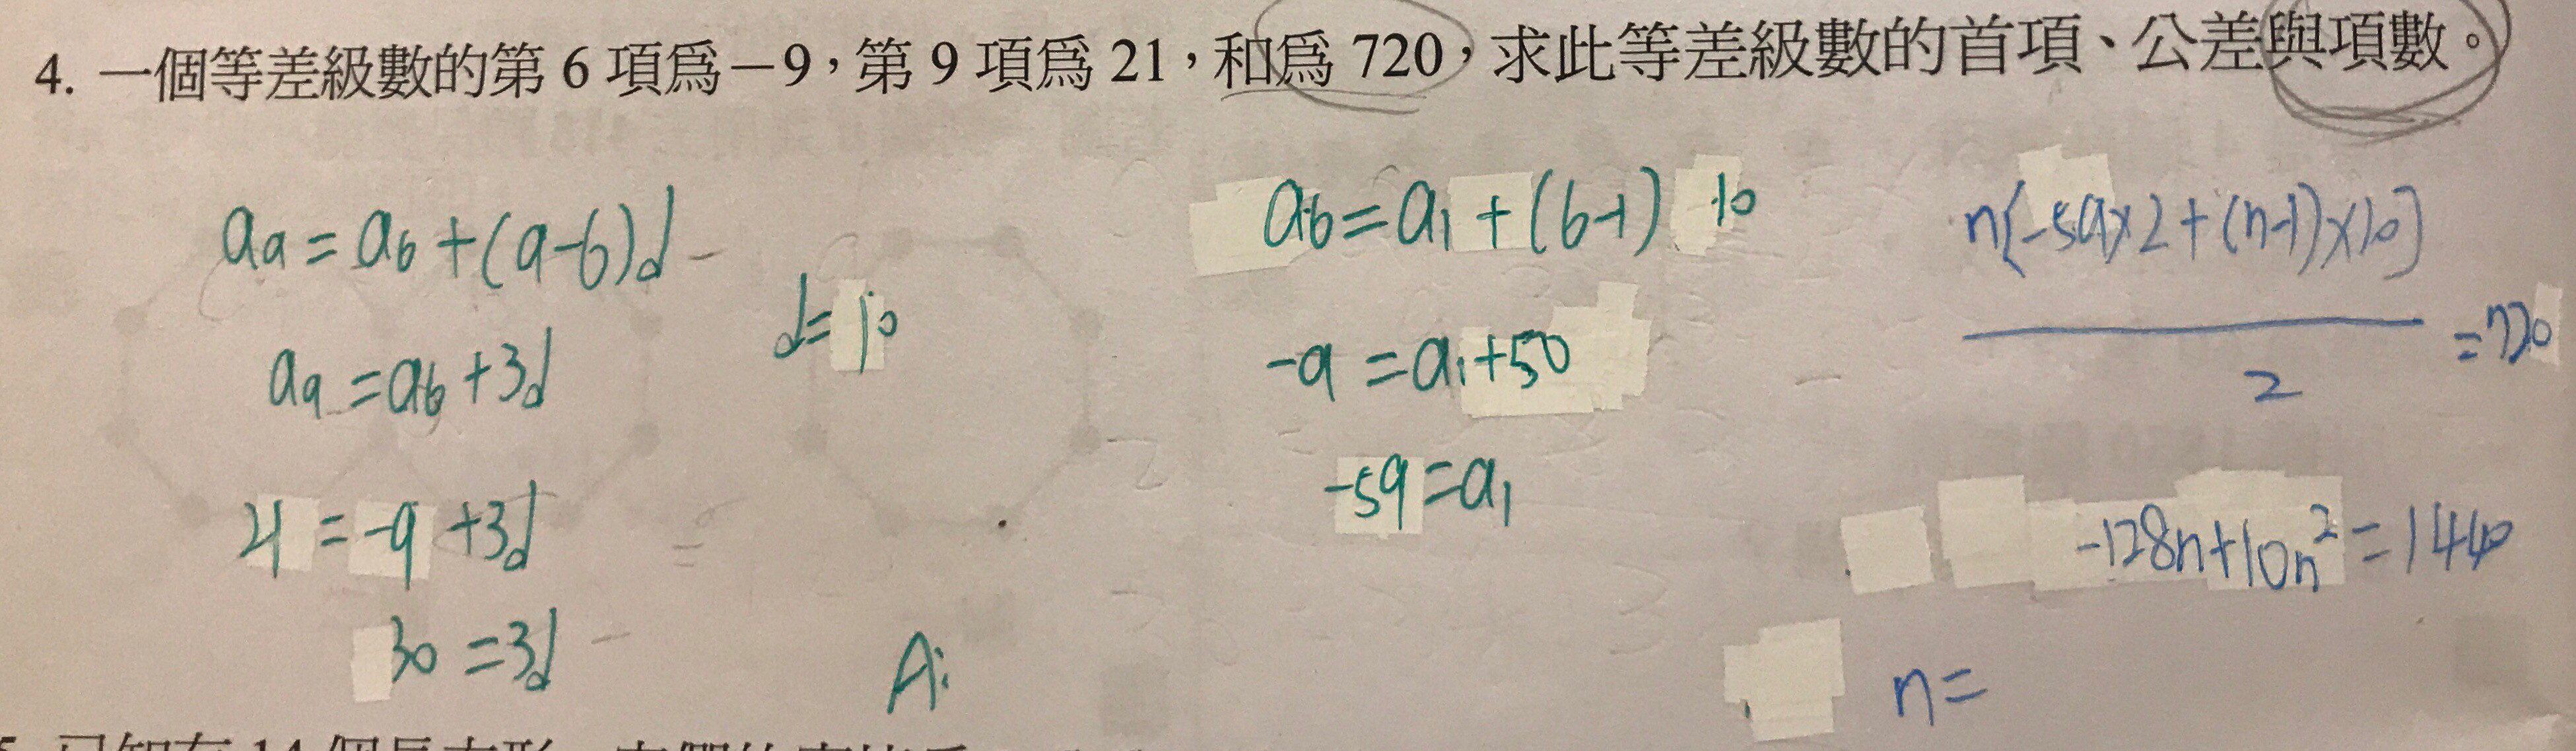 4. 一個等差級數的第 6 項爲－9，第 9 項爲 21，和爲 720，求此等差級數的首項、公差與項數。
a9=a6+(9-6)d
a9=a6+3d
21=-9+3d
30=3d
d=10
A:
a6=a1+(6-1) 10
-9=a1+50
-59=a1
n[-59×2+(n-1)×10]
2
=720
-128n+10n²=1440
n=